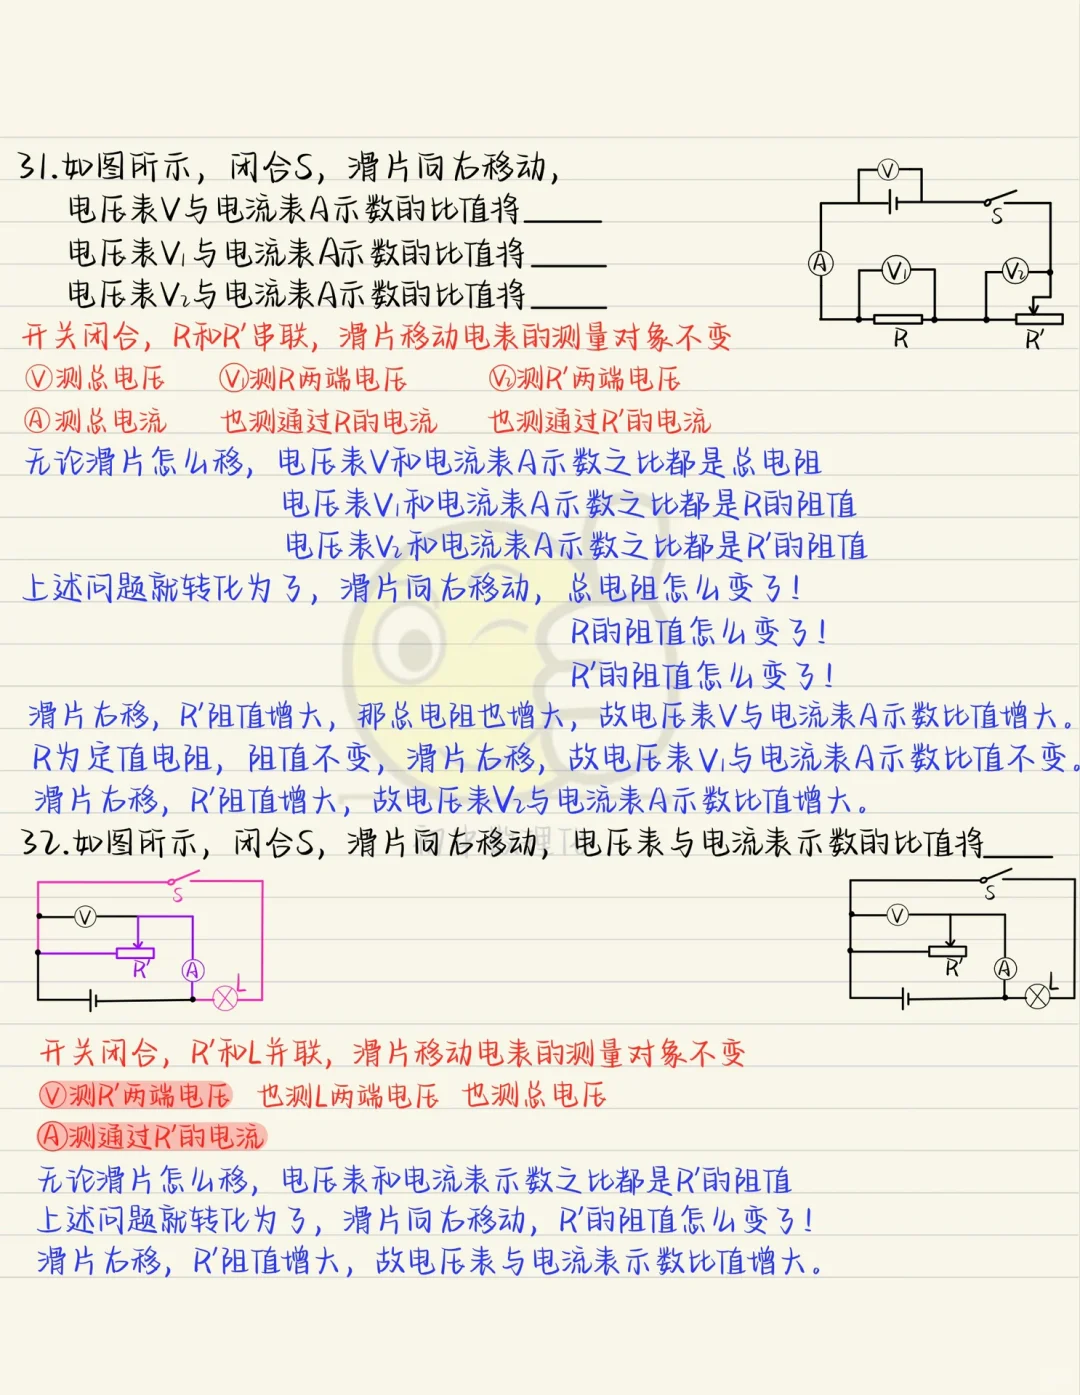 31.如图所示，闭合S，滑片向右移动，
电压表V与电流表A示数的比值将______
电压表V₁与电流表A示数的比值将______
电压表V₂与电流表A示数的比值将______
V
S
A
V₁
V₂
R
R′
开关闭合，R和R′串联，滑片移动电表的测量对象不变
Ⓥ测总电压 V₁测R两端电压 V₂测R′两端电压
Ⓐ测总电流 也测通过R的电流 也测通过R′的电流
无论滑片怎么移，电压表V和电流表A示数之比都是总电阻
电压表V₁和电流表A示数之比都是R的阻值
电压表V₂和电流表A示数之比都是R′的阻值
上述问题就转化为了，滑片向右移动，总电阻怎么变了！
R的阻值怎么变了！
R′的阻值怎么变了！
滑片右移，R′阻值增大，那总电阻也增大，故电压表V与电流表A示数比值增大。
R为定值电阻，阻值不变，滑片右移，故电压表V₁与电流表A示数比值不变。
滑片右移，R′阻值增大，故电压表V₂与电流表A示数比值增大。
32.如图所示，闭合S，滑片向右移动，电压表与电流表示数的比值将______
S
V
R′
A
L
S
V
R′
A
L
开关闭合，R′和L并联，滑片移动电表的测量对象不变
Ⓥ测R′两端电压 也测L两端电压 也测总电压
Ⓐ测通过R′的电流
无论滑片怎么移，电压表和电流表示数之比都是R′的阻值
上述问题就转化为了，滑片向右移动，R′的阻值怎么变了！
滑片右移，R′阻值增大，故电压表与电流表示数比值增大。